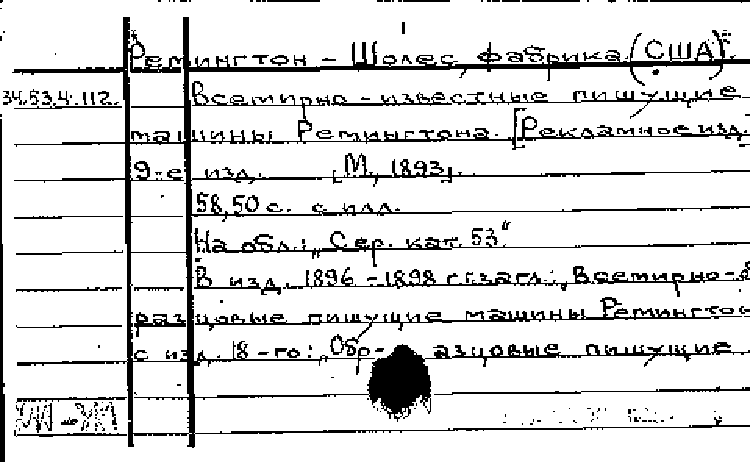 Ремингтон – Шолес, фабрика (США).
34.53.4.112. Всемирно-известные пишущие
машины Ремингтона. [Рекламное изд.
9-е изд. [М., 1893].
58,50 с. с илл.
На обл.: „Сер. кат. 53“
В изд. 1896–1898 гг. загл.: „Всемирно-
разцовые пишущие машины Ремингтон
с изд. 8-го: „Обр- азцовые пишущие